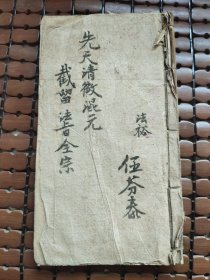 先天清微混元
截留法音全宗
法裕
伍芬泰